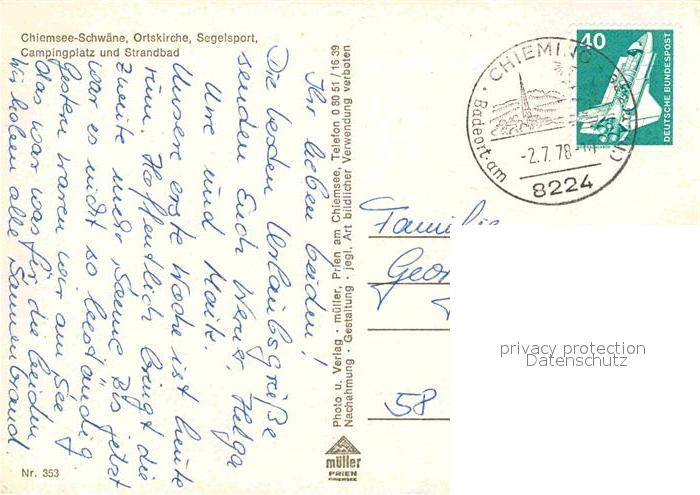 Chiemsee-Schwäne, Ortskirche, Segelsport,
Campingplatz und Strandbad
Ihr lieben beiden!
Die besten Urlaubsgrüße
senden Euch Werner, Helga
Ute und Maik.
Unsere erste Woche ist heute
rum. Hoffentlich bringt die
zweite mehr Sonne. Bis jetzt
war es nicht so beständig
Gestern waren wir am See
das war was für die beiden
Wir haben alle Sonnenbrand
Nr. 353
Photo u. Verlag · müller, Prien am Chiemsee, Telefon 0 80 51 / 16 39
Nachahmung · Gestaltung · jegl. Art bildlicher Verwendung verboten
müller
PRIEN
CHIEMSEE
CHIEMING
Badeort am
-2.7.78
8224
40
DEUTSCHE BUNDESPOST
Familie
Geor
58
privacy protection
Datenschutz